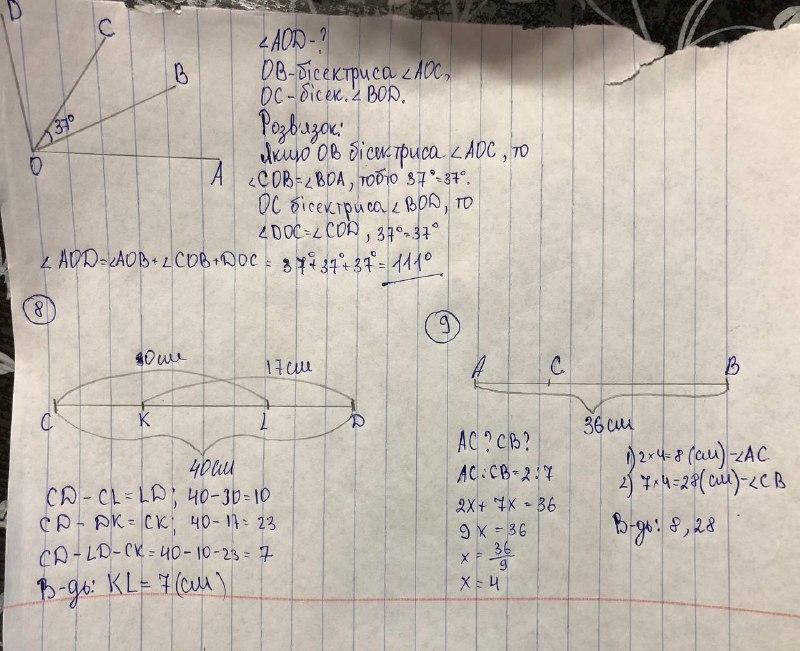 D
C
B
37°
O
A
∠AOD-?
OB-бісектриса ∠AOC,
OC-бісек. ∠BOD.
Розв'язок:
Якщо OB бісектриса ∠AOC, то
∠COB=∠BOA, тобто 37°=37°.
OC бісектриса ∠BOD, то
∠DOC=∠COD, 37°=37°
∠AOD=∠AOB+∠COB+DOC = 37°+37°+37°=111°
8
17см
C K L D
40см
CD-CL=LD; 40-30=10
CD-DK=CK; 40-17=23
CD-LD-CK=40-10-23=7
В-дь: KL=7(см)
9
A C B
36см
AC? CB?
AC:CB=2:7
2x+7x=36
9x=36
x=36/9
x=4
1) 2×4=8(см)-∠AC
2) 7×4=28(см)-∠CB
В-дь: 8, 28